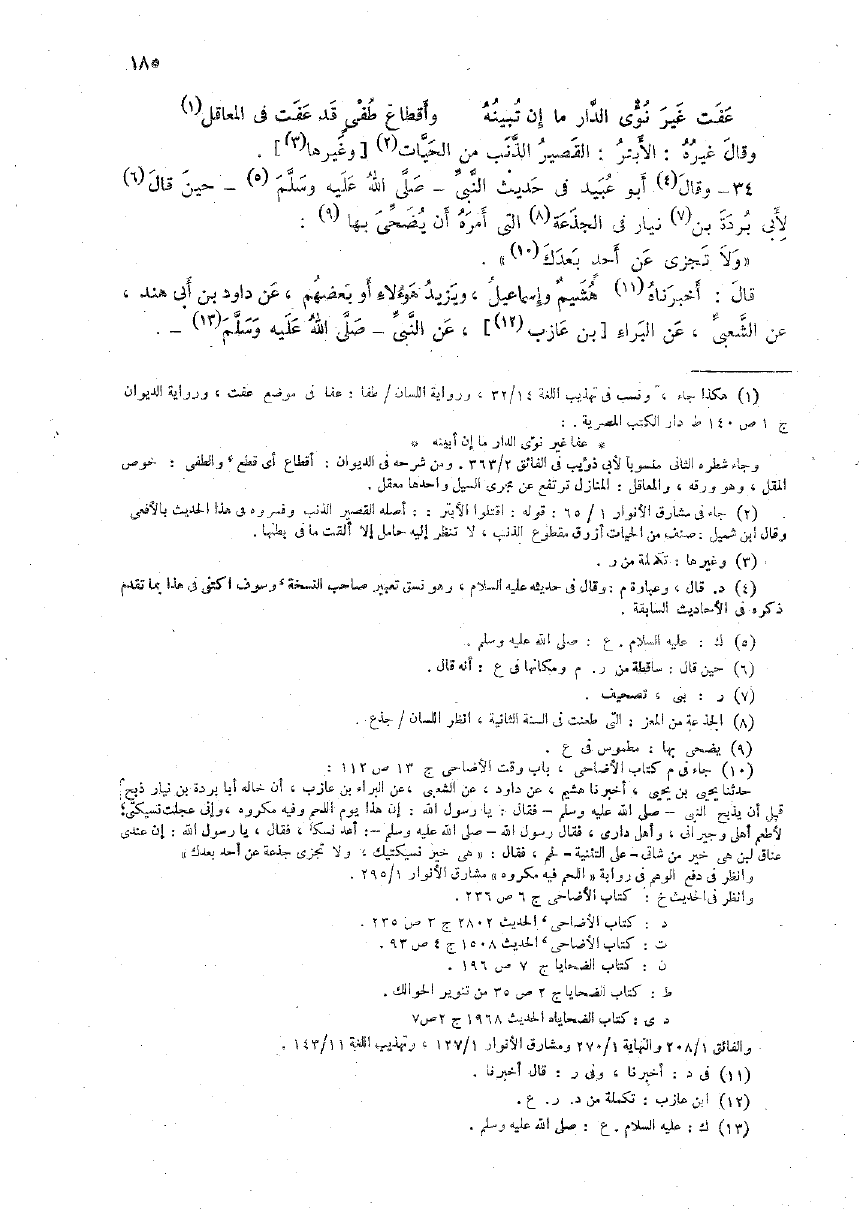 ١٨٥
عَفَت غَيرَ نُؤْىِ الدَّار ما إن تُبينُهُ وأَقطاعَ طُفْىٍ قَد عَفَت فى المعاقل(١)
وقالَ غيرُهُ : الأَبترُ : القَصيرُ الذَّنَب من الحَيَّات(٢) [ وغَيرها(٣) ] .
٣٤ – وقالَ(٤) أبو عُبَيد فى حَديث النَّبىِّ – صَلَّى اللهُ عَلَيه وسَلَّمَ (٥) – حينَ قالَ(٦)
لِأَبى بُردَةَ بن(٧) نيار فى الجذَعَة(٨) التى أَمرَهُ أَن يُضَحِّىَ بها (٩) :
«وَلاَ تَجزى عَن أَحدٍ بَعدَكَ(١٠)» .
قالَ : أَخبرَناهُ(١١) هُشَيمٌ وإسماعيلُ ، ويَزيدُ هَؤُلاءِ أَو بَعضهُم ، عَن داود بن أبى هند ،
عن الشَّعبىِّ ، عَن البَراء [ بن عَازب(١٢) ] ، عَن النَّبىِّ – صَلَّى اللهُ عَلَيه وَسَلَّمَ(١٣) – .
(١) هكذا جاء ، ونسب فى تهذيب اللغة ٣٢/١٤ ، ورواية اللسان / طفا : عفا فى موضع عفت ، ورواية الديوان
ج ١ ص ١٤٠ ط دار الكتب المصرية . :
* عفا غير نؤى الدار ما إن أبينه *
وجاء شطره الثانى منسوباً لأبى ذؤيب فى الفائق ٣٦٣/٢ . ومن شرحه فى الديوان : أقطاع أى قطع ، والطفى : خوص
المقل ، وهو ورقه ، والمعاقل : المنازل ترتفع عن مجرى السيل واحدها معقل .
(٢) جاء فى مشارق الأنوار ١ / ٦٥ : قوله : اقتلوا الأبتر : : أصله القصير الذنب وفسروه فى هذا الحديث بالأفعى
وقال ابن شميل : صنف من الحيات أزرق مقطوع الذنب ، لا تنظر إليه حامل إلا ألقت ما فى بطنها .
(٣) وغيرها : تكملة من ر .
(٤) د. قال ، وعبارة م : وقال فى حديثه عليه السلام ، وهو نسق تعبير صاحب النسخة ، وسوف أكتفى فى هذا بما تقدم
ذكره فى الأحاديث السابقة .
(٥) ك : عليه السلام . ع : صلى الله عليه وسلم .
(٦) حين قال : ساقطة من ر. م ومكانها فى ع : أنه قال .
(٧) ر : بنى ، تصحيف .
(٨) الجذعة من المعز : التى طعنت فى السنة الثانية ، انظر اللسان / جذع .
(٩) يضحى بها : مطموس فى ع .
(١٠) جاء فى م كتاب الأضاحى ، باب وقت الأضاحى ج ١٣ ص ١١٢ :
حدثنا يحيى بن يحيى ، أخبرنا هشيم ، عن داود ، عن الشعبى ، عن البراء بن عازب ، أن خاله أبا بردة بن نيار ذبح
قبل أن يذبح النبى – صلى الله عليه وسلم – فقال : يا رسول الله : إن هذا يوم اللحم وفيه مكروه ، وإنى عجلت نسيكتى
لأطعم أهلى وجيرانى ، وأهل دارى ، فقال رسول الله – صلى الله عليه وسلم –: أعد نسكاً ، فقال ، يا رسول الله : إن عندى
عناق لبن هى خير من شاتى – على التثنية – لحم ، فقال : « هى خير نسيكتيك ، ولا تجزى جذعة عن أحد بعدك »
وانظر فى دفع الوهم فى رواية « اللحم فيه مكروه » مشارق الأنوار ٢٩٥/١ .
وانظر فى الحديث خ : كتاب الأضاحى ج ٦ ص ٢٣٦ .
د : كتاب الأضاحى ، الحديث ٢٨٠٢ ج ٣ ص ٢٣٥ .
ت : كتاب الأضاحى ، الحديث ١٥٠٨ ج ٤ ص ٩٣ .
ن : كتاب الضحايا ج ٧ ص ١٩٦ .
ط : كتاب الضحايا ج ٢ ص ٣٥ من تنوير الحوالك .
دى : كتاب الضحايا، الحديث ١٩٦٨ ج ٢ ص ٧
والفائق ٢٠٨/١ والنهاية ٢٧٠/١ ومشارق الأنوار ١٢٧/١ ، وتهذيب اللغة ١٤٣/١١ .
(١١) فى د : أخبرنا ، وفى ر : قال أخبرنا .
(١٢) ابن عازب : تكملة من د. ر. ع.
(١٣) ك : عليه السلام . ع : صلى الله عليه وسلم .